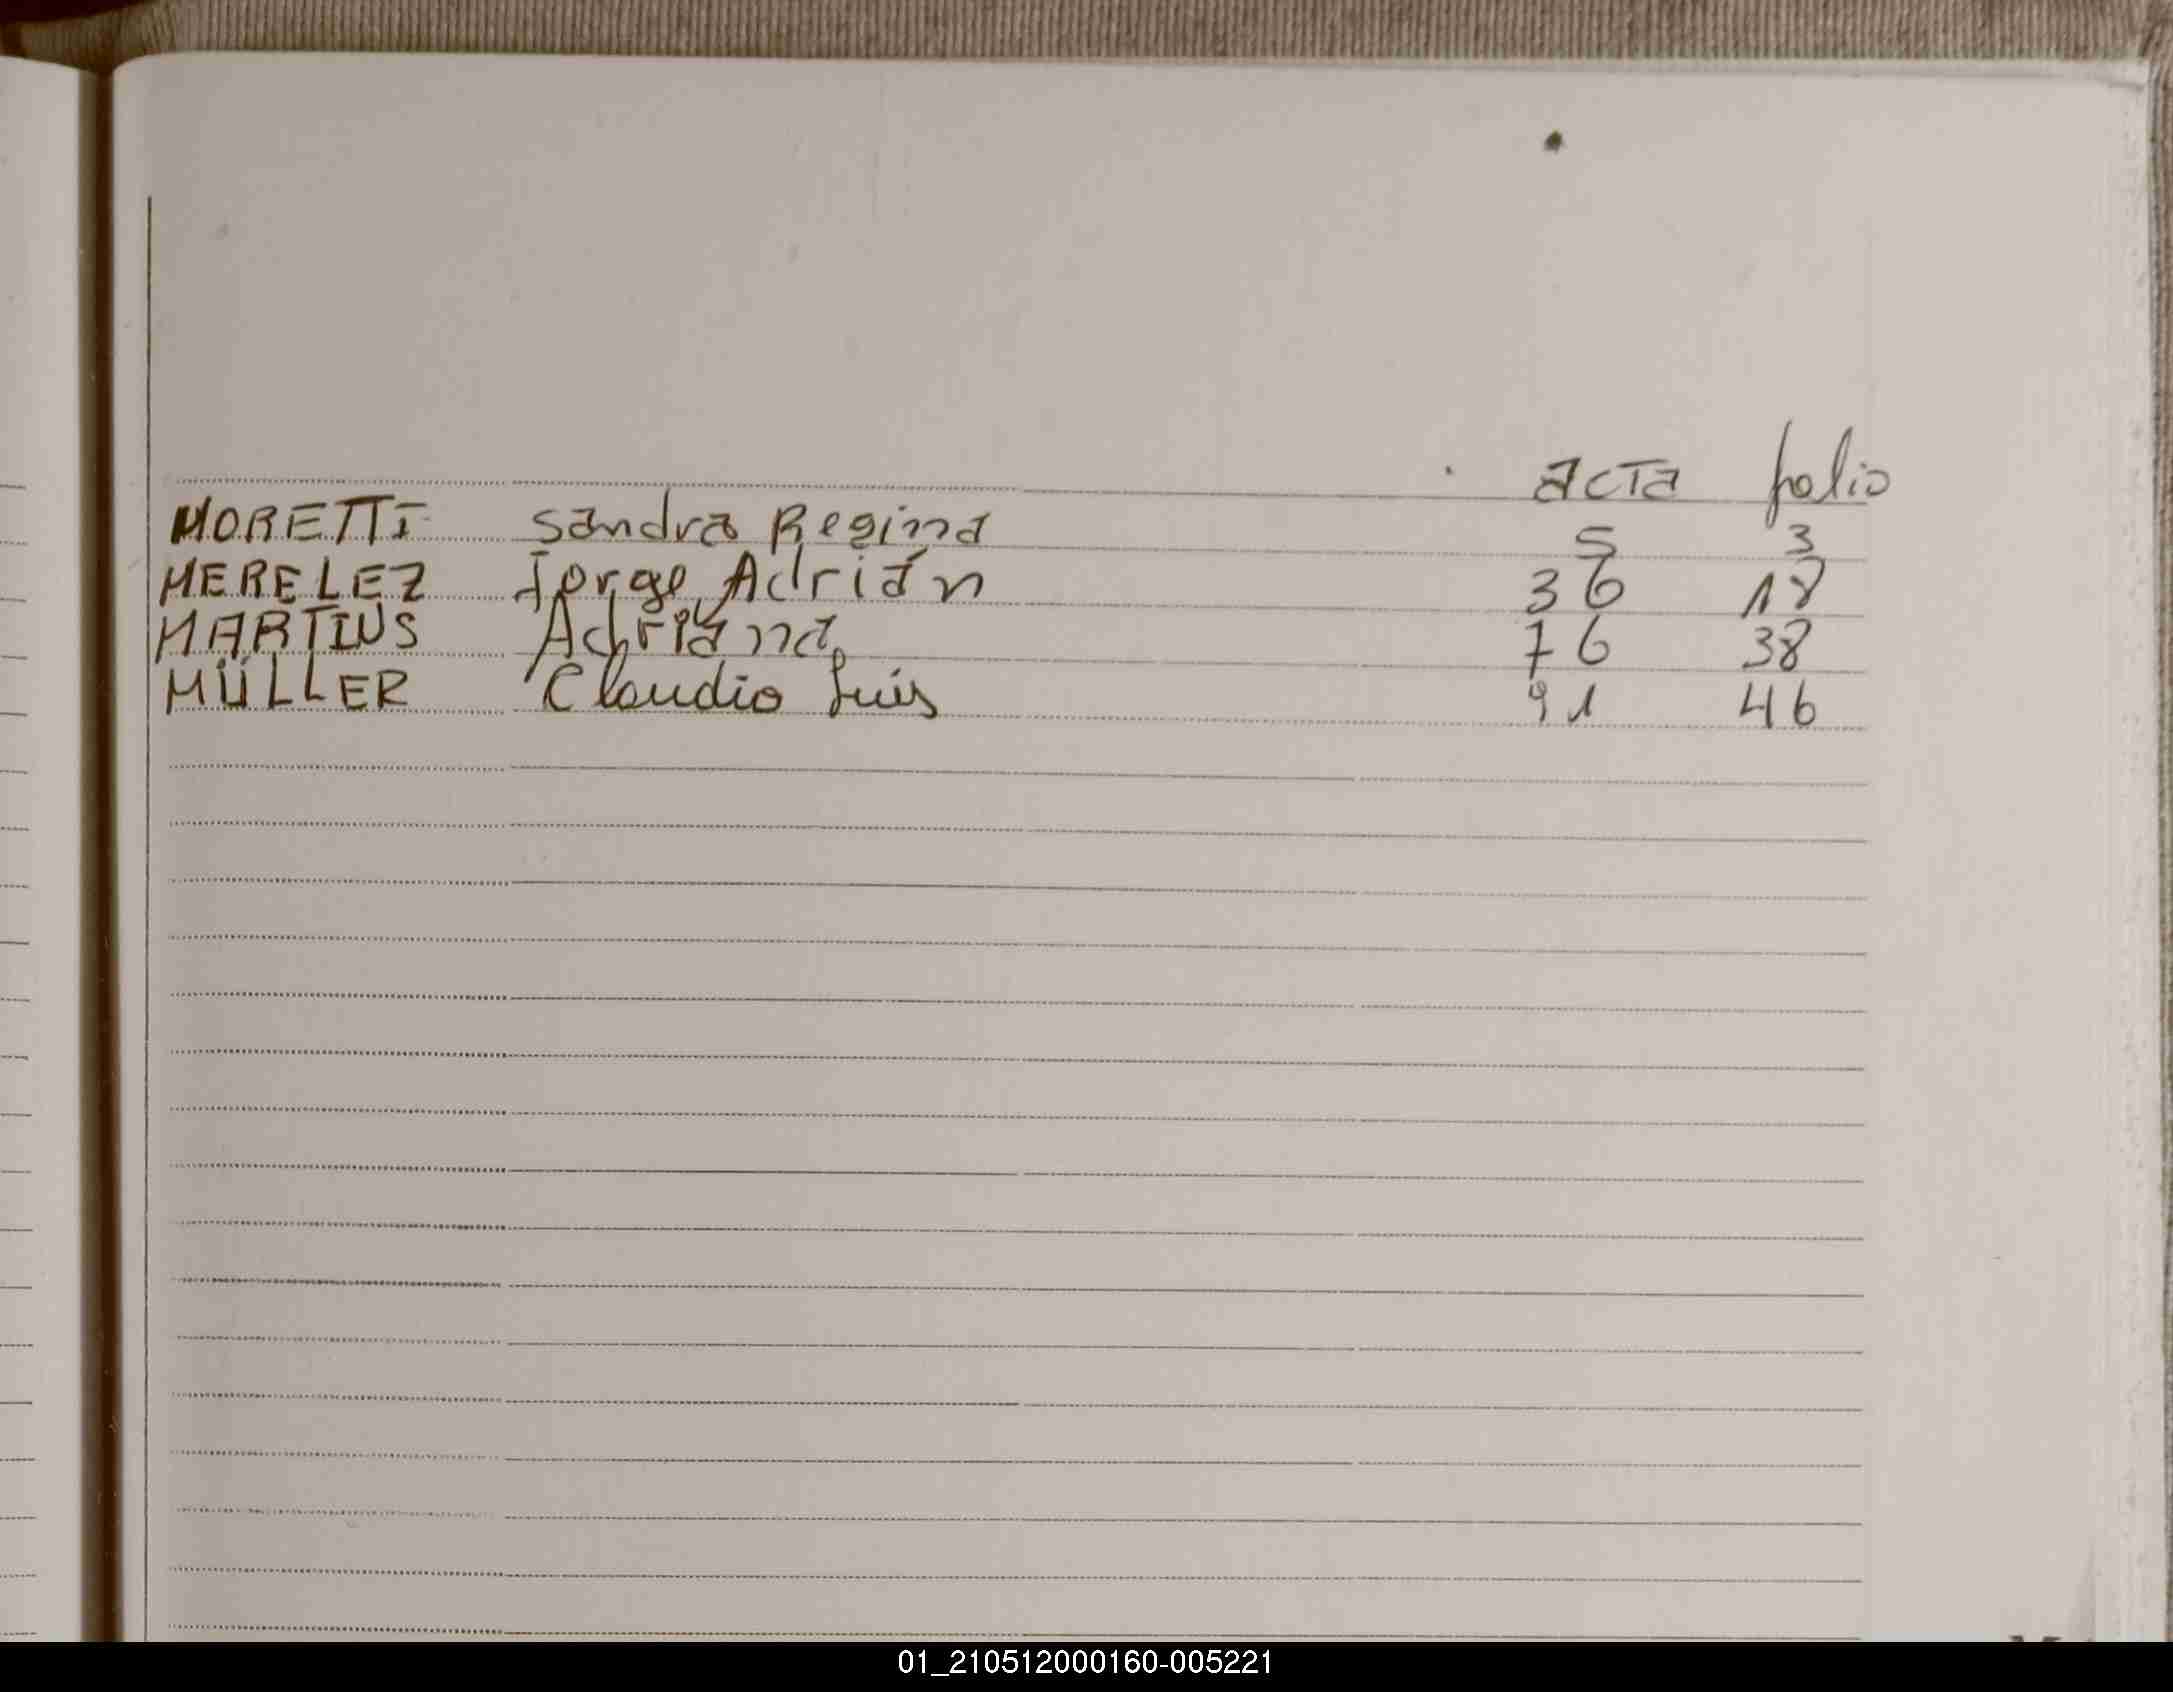 acta folio
MORETTI Sandra Regina 5 3
MERELEZ Jorge Adrián 36 18
MARTINS Adriana 76 38
MÜLLER Claudio Luis 91 46
01_210512000160-005221